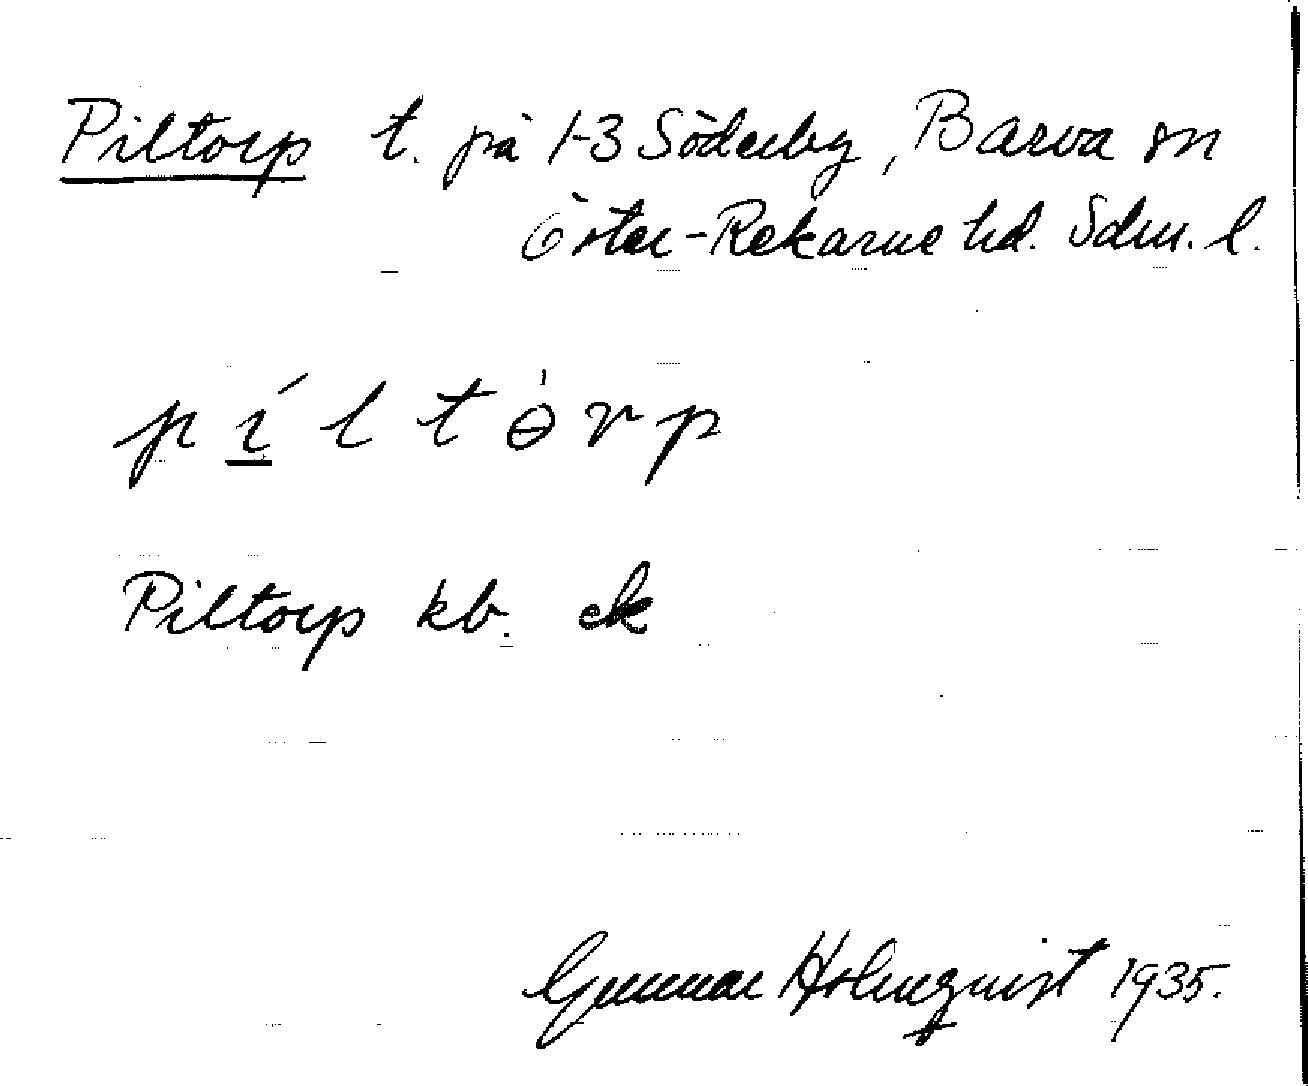 Piltorp t. på 1-3 Söderby, Barva sn
Öster-Rekarne hd. Sdm. l.
pı́ltɵ̍rp
Piltorp kb. ek
Gunnar Holmquist 1935.